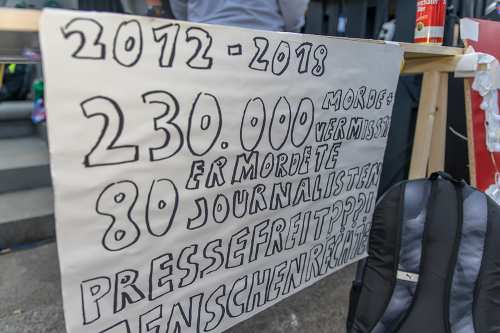 2012-2018
230.000 MORDE +
VERMISSTE
ERMORDETE
80 JOURNALISTEN
PRESSEFREIT???!
MENSCHENRECHTE